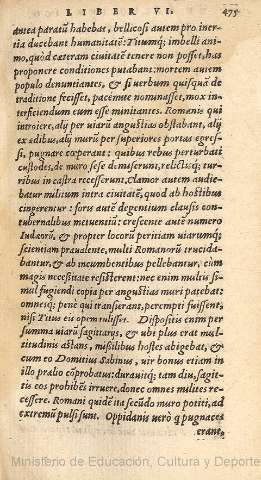 LIBER VI. 475
antea paratũ habebat, bellicosi autem pro iner-
tia ducebant humanitatẽ: Titumq; imbelli ani-
mo, quòd cæteram ciuitatẽ tenere non posset, has
proponere conditiones putabant: mortem autem
populo denuntiantes, & si uerbum quisquã de
traditione fecisset, pacemue nominasset, mox in-
terficiendum cum esse minitantes. Romanis qui
introiere, alij per uiarũ angustias obstabant, alij
ex ædibus, alij murũ per superiores portas egres-
si, pugnare cœperunt: quibus rebus perturbati
custodes, de muro sese demiserunt, relictisq; tur-
ribus in castra recesserunt. Clamor autem audie-
batur militum intra ciuitatẽ, quod ab hostibus
cingerentur: foris autẽ degentium clausis con-
tubernalibus metuentiũ: crescente autẽ numero
Iudæorũ, & propter locorũ peritiam uiarumq;
scientiam præualente, multi Romanorũ trucida-
bantur, & ab incumbentibus pellebantur. cùm
magis necessitate resisterent: nec enim multis si-
mul fugiendi copia per angustias muri patebat:
omnesq; penè qui transierant, perempti fuissent,
nisi Titus eis opem tulisset. Dispositis enim per
summa uiarũ sagittarijs, & ubi plus erat mul-
titudinis astans, missilibus hostes abigebat, &
cum eo Domitius Sabinus, uir bonus etiam in
illo prælio cõprobatus: durauitq; tam diu, sagit-
tis eos prohibẽs irruere, donec omnes milites re-
cessere. Romani quidẽ ita secũdo muro potiti, ad
extremũ pulsi sunt. Oppidanis uerò q̃ pugnaces
erant,
Ministerio de Educación, Cultura y Deporte